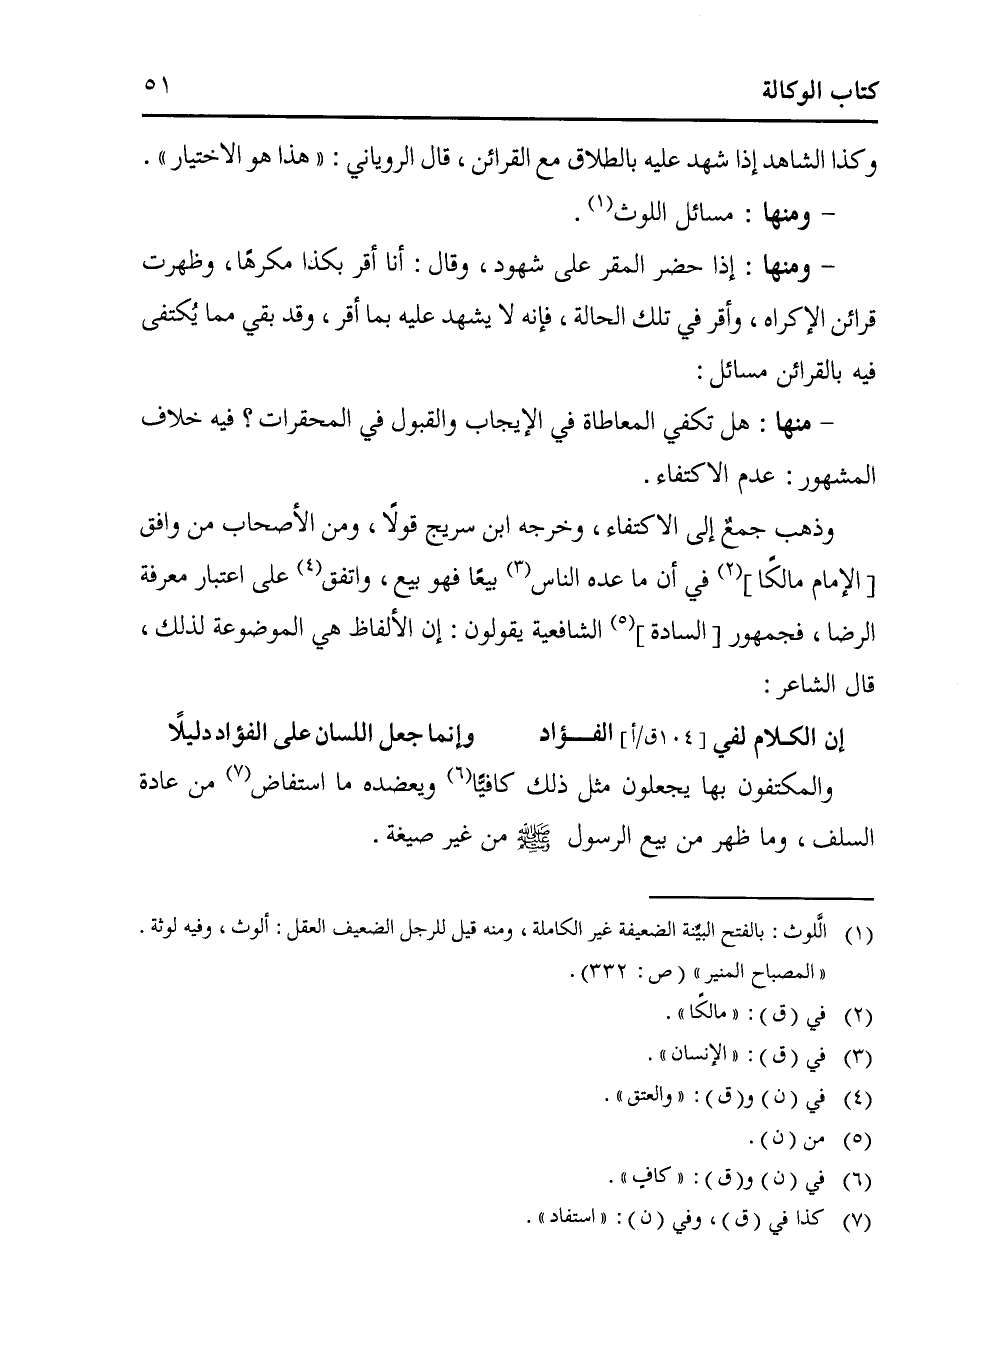 كتاب الوكالة ٥١
وكذا الشاهد إذا شهد عليه بالطلاق مع القرائن ، قال الروياني : « هذا هو الاختيار » .
– ومنها : مسائل اللوث(١) .
– ومنها : إذا حضر المقر على شهود ، وقال : أنا أقر بكذا مكرهًا ، وظهرت
قرائن الإكراه ، وأقر في تلك الحالة ، فإنه لا يشهد عليه بما أقر ، وقد بقي مما يُكتفى
فيه بالقرائن مسائل :
– منها : هل تكفي المعاطاة في الإيجاب والقبول في المحقرات ؟ فيه خلاف
المشهور : عدم الاكتفاء .
وذهب جمعٌ إلى الاكتفاء ، وخرجه ابن سريج قولًا ، ومن الأصحاب من وافق
[ الإمام مالكًا ](٢) في أن ما عده الناس(٣) بيعًا فهو بيع ، واتفق(٤) على اعتبار معرفة
الرضا ، فجمهور [ السادة ](٥) الشافعية يقولون : إن الألفاظ هي الموضوعة لذلك ،
قال الشاعر :
إن الكـلام لفي [١٠٤ق/أ] الفــؤاد وإنما جعل اللسان على الفؤاد دليلًا
والمكتفون بها يجعلون مثل ذلك كافيًّا(٦) ويعضده ما استفاض(٧) من عادة
السلف ، وما ظهر من بيع الرسول ﷺ من غير صيغة .
(١) اللَّوث : بالفتح البيِّنة الضعيفة غير الكاملة ، ومنه قيل للرجل الضعيف العقل : ألوث ، وفيه لوثة .
« المصباح المنير » ( ص : ٣٣٢) .
(٢) في ( ق ) : « مالكًا » .
(٣) في ( ق ) : « الإنسان » .
(٤) في ( ن ) و( ق ) : « والعتق » .
(٥) من ( ن ) .
(٦) في ( ن ) و( ق ) : « كافٍ » .
(٧) كذا في ( ق ) ، وفي ( ن ) : « استفاد » .